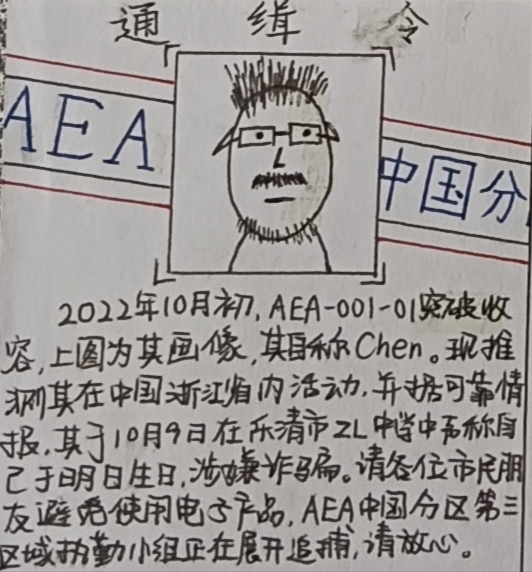 通缉令
AEA
中国分
2022年10月初，AEA-001-01突破收
容，上图为其画像，其自称Chen。现推
测其在中国浙江省内活动，并据可靠情
报，其于10月9日在乐清市ZL中学中声称自
己于明日生日，涉嫌诈骗。请各位市民朋
友避免使用电子产品，AEA中国分区第三
区域执勤小组正在展开追捕，请放心。